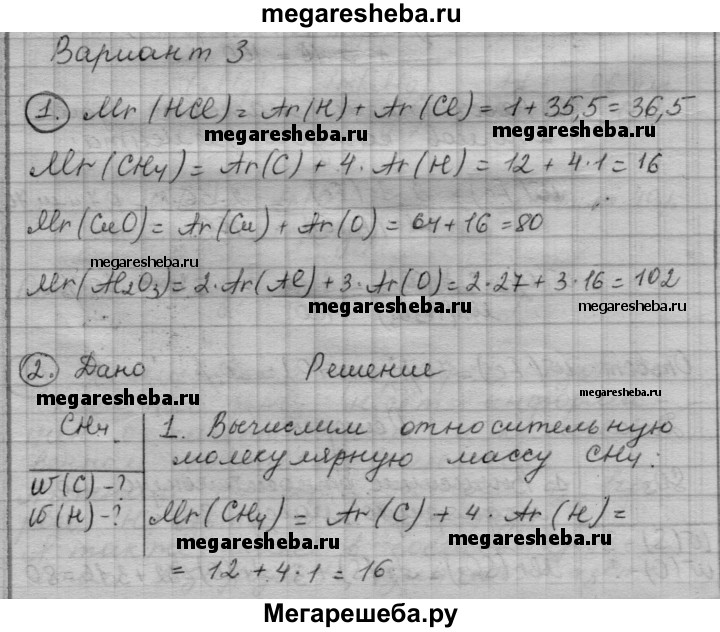 megaresheba.ru
Вариант 3
1. Mr(HCl) = Ar(H) + Ar(Cl) = 1 + 35,5 = 36,5
megaresheba.ru megaresheba.ru
Mr(CH₄) = Ar(C) + 4 · Ar(H) = 12 + 4·1 = 16
Mr(CuO) = Ar(Cu) + Ar(O) = 64 + 16 = 80
megaresheba.ru
Mr(Al₂O₃) = 2·Ar(Al) + 3·Ar(O) = 2·27 + 3·16 = 102
megaresheba.ru megaresheba.ru
2. Дано Решение
megaresheba.ru megaresheba.ru
CH₄ 1. Вычислим относительную
молекулярную массу CH₄:
w(C) - ?
w(H) - ? Mr(CH₄) = Ar(C) + 4 · Ar(H) =
megaresheba.ru megaresheba.ru
= 12 + 4·1 = 16
Мегарешеба.ру